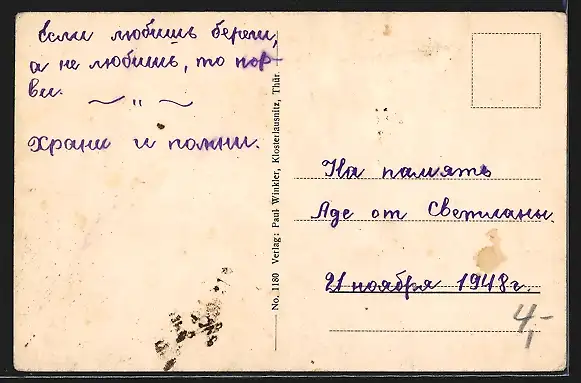 Если любишь береги,
а не любишь, то пор-
ви.
~ " ~
Храни и помни.
No. 1180 Verlag: Paul Winkler, Klosterlausnitz, Thür.
На память
Аде от Светланы.
21 ноября 1948 г.
4,-